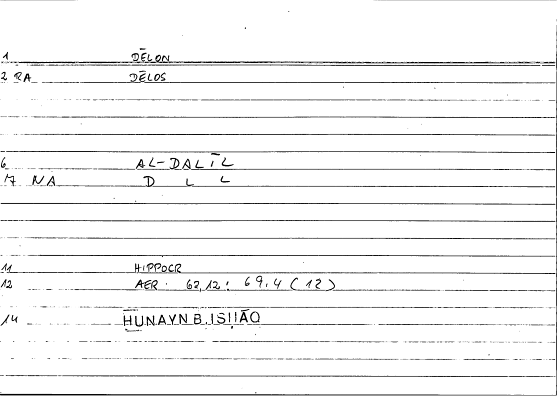 1 DĒLON
2 RA DĒLOS
6 AL-DALĪL
17 NA D L L
11 HIPPOCR
12 AER. 62,12: 69,4 (12)
14 ḤUNAYN B. ISḤĀQ